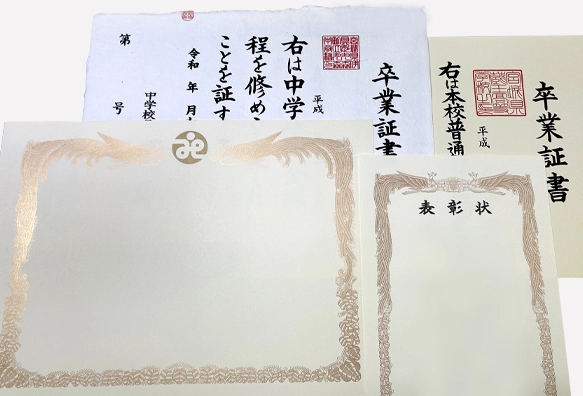 卒業証書
平成
右は中学
程を修め
ことを証す
令和 年 月
中学校
第 号
卒業証書
平成
右は本校普通
表彰状